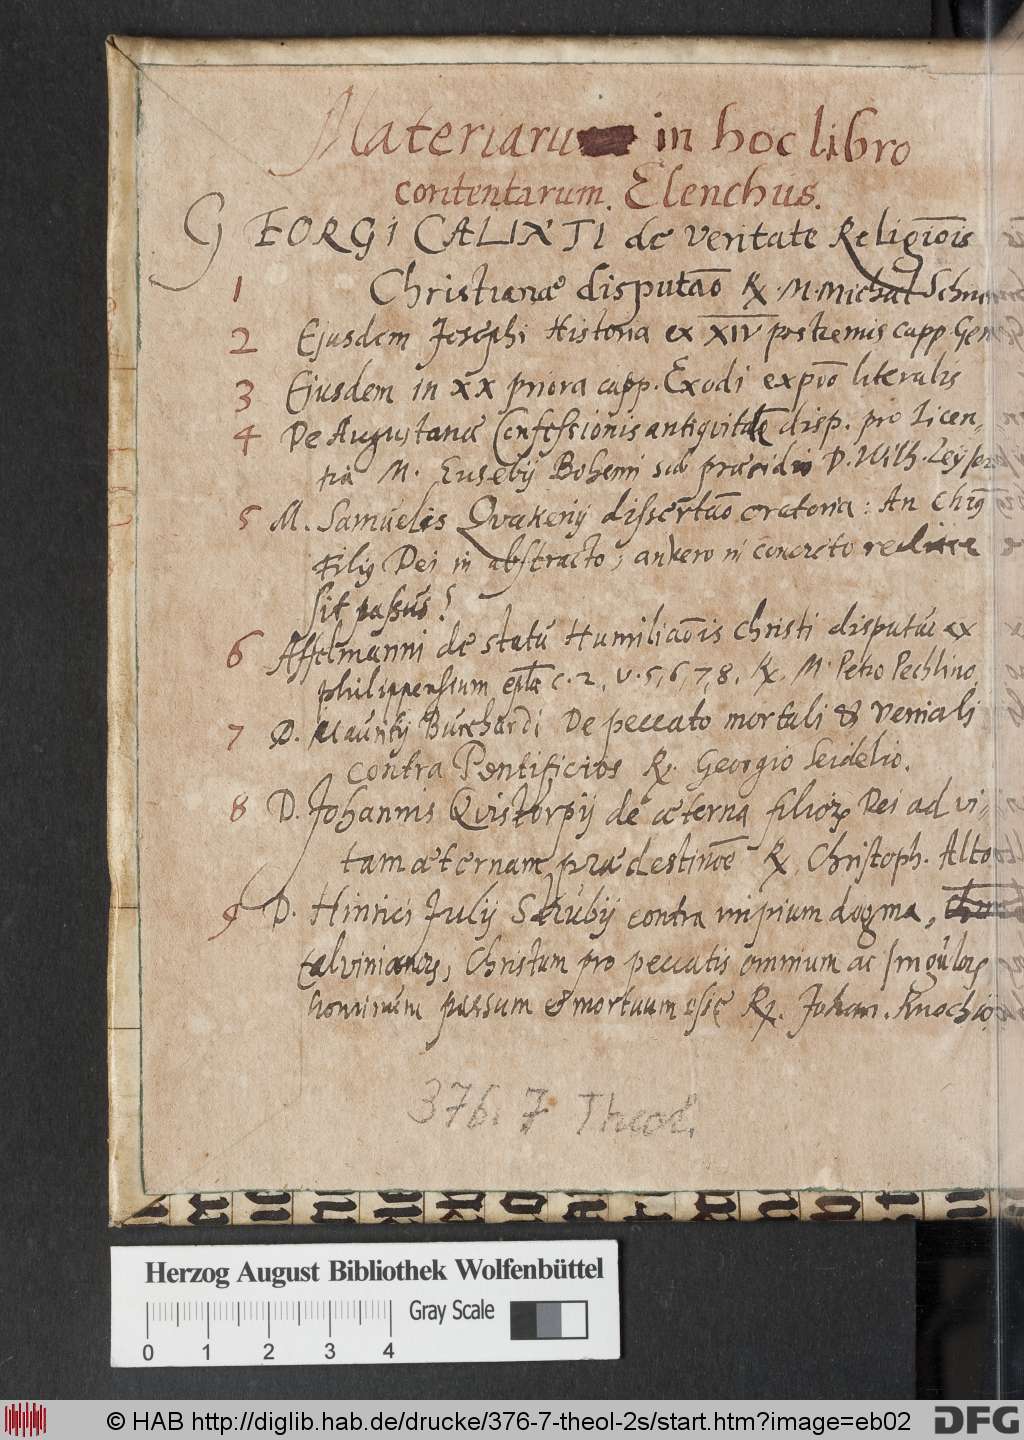 Materiarum in hoc libro
contentarum. Elenchus.
GEORGI CALIXTI de veritate Religiōis
1 Christianæ disputaõ R. M. Michael
2 Ejusdem Josephi Historia ex XIV postremis capp. Gen
3 Ejusdem in xx priora capp. Exodi expōo literalis
4 De Augustanæ Confessionis antiquitate disp. pro Licen-
tia M. Eusebij Bohemi sub præsidio D. Wilh. Leyseri
5 M. Samuelis Qvakenij dissertaõ oratoria: An Chr9
Fili9 Dei in abstracto, an vero in concreto
sit passus?
6 Affelmanni de statu Humiliaõis Christi disputaõ ex
philippensium epla c. 2, v. 5, 6, 7, 8. R. M. Petro Pechlino
7 D. Mauritij Burchardi De peccato mortali & veniali
contra Pontificios R. Georgio Seidelio.
8 D. Johannis Qvistorpij de æterna filior. Dei ad vi-
tam æternam prædestinõe R. Christoph.
9 D. Hinrici Julij Strubij contra impium dogma,
Calvinianor, Christum pro peccatis omnium ac singulor
hominum passum & mortuum esse R. Johan. Knochio
376. 7 Theol.
Herzog August Bibliothek Wolfenbüttel
Gray Scale
0 1 2 3 4
© HAB http://diglib.hab.de/drucke/376-7-theol-2s/start.htm?image=eb02
DFG